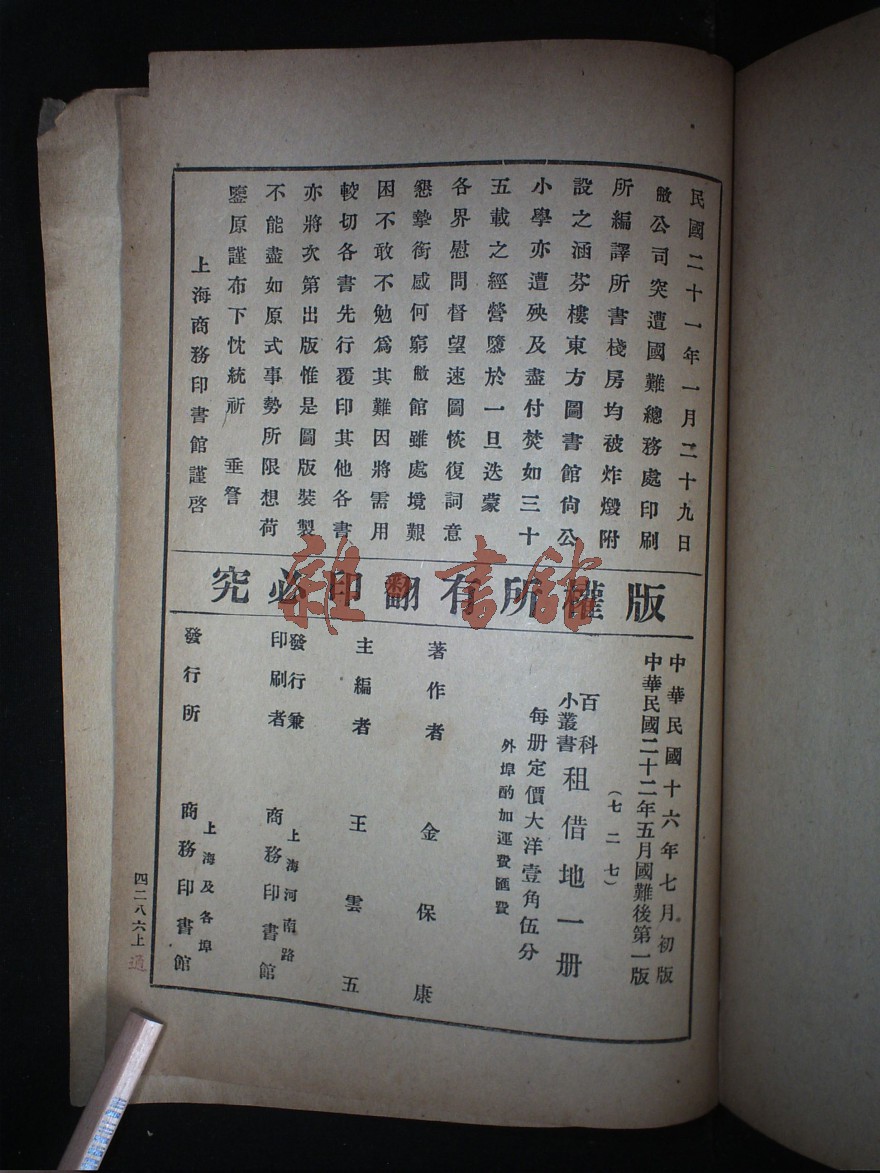 民國二十一年一月二十九日
敝公司突遭國難總務處印刷
所編譯所書棧房均被炸燬附
設之涵芬樓東方圖書館尙公
小學亦遭殃及盡付焚如三十
五載之經營隳於一旦迭蒙
各界慰問督望速圖恢復詞意
懇摯銜感何窮敝館雖處境艱
困不敢不勉爲其難因將需用
較切各書先行覆印其他各書
亦將次第出版惟是圖版裝製
不能盡如原式事勢所限想荷
鑒原謹布下忱統祈 垂詧
上海商務印書館謹啓
版權所有翻印必究
中華民國十六年七月初版
中華民國二十二年五月國難後第一版
(七二七)
百科小叢書 租借地一册
每册定價大洋壹角伍分
外埠酌加運費匯費
著作者 金保康
主編者 王雲五
發行兼印刷者 上海河南路 商務印書館
發行所 上海及各埠 商務印書館
四二八六上
雜·書館